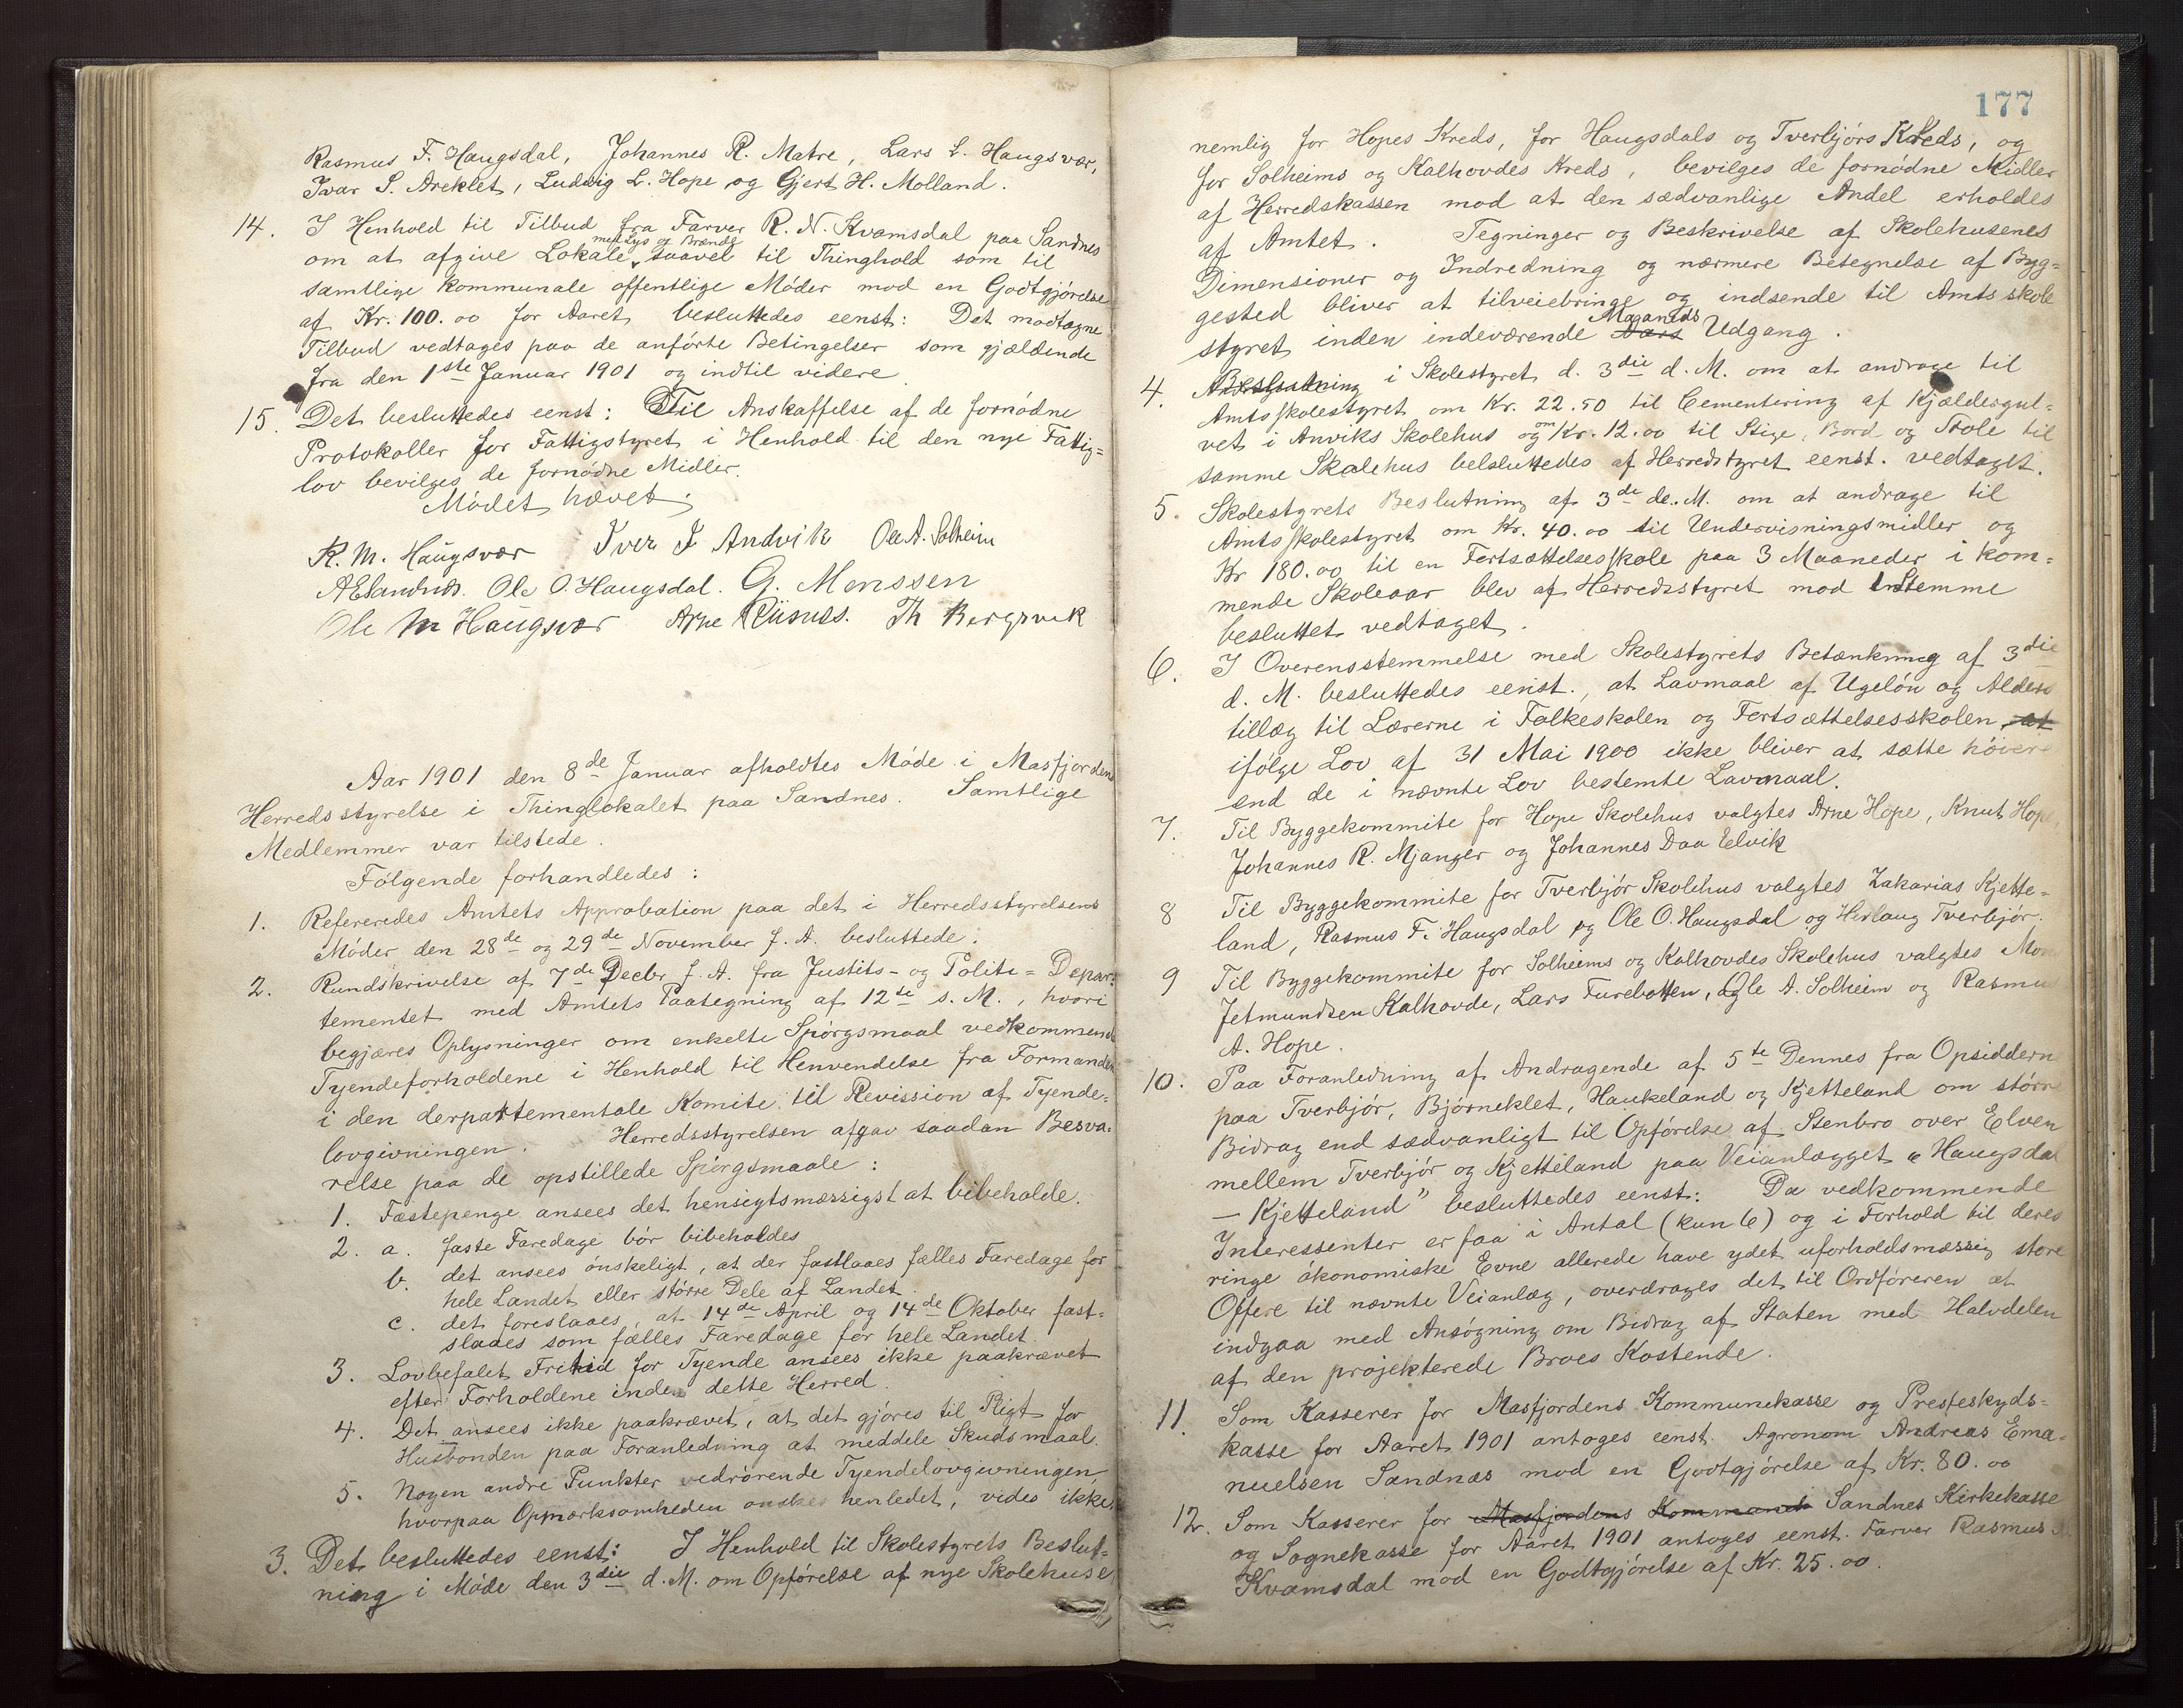 Rasmus F. Haugsdal, Johannes R. Matre, Lars L. Haugsvær,
Ivar S. Areklet, Ludvig L. Hope og Gjert H. Molland.
14. I Henhold til Tilbud fra Farver R. N. Kvamsdal paa Sandnes
om at afgive Lokale med Lys og Brænde saavel til Thinghold som til
samtlige kommunale offentlige Møder mod en Godtgjørelse
af Kr. 100.00 for Aaret besluttedes eenst: Det modtagne
Tilbud vedtages paa de anførte Betingelser som gjældende
fra den 1ste Januar 1901 og indtil videre.
15. Det besluttedes eenst: Til Anskaffelse af de fornødne
Protokoller for Fattigstyret i Henhold til den nye Fattig=
lov bevilges de fornødne Midler.
Mødet hævet.
R. M. Haugsvær Iver J Andvik Ole A. Solheim
AESandnes. Ole O. Haugsdal. G. Monssen
Ole M Haugsvær Arne Th Bergsvik
Aar 1901 den 8de Januar afholdtes Møde i Masfjordens
Herredsstyrelse i Thinglokalet paa Sandnes. Samtlige
Medlemmer var tilstede.
Følgende forhandledes:
1. Refereredes Amtets Approbation paa det i Herredsstyrelsens
Møder den 28de og 29de November f. A. besluttede.
2. Rundskrivelse af 7de Decbr f. A. fra Justits- og Politi=Depar=
tementet med Amtets Paategning af 12te s. M., hvori
begjæres Oplysninger om enkelte Spørgsmaal vedkommende
Tyendeforholdene i Henhold til Henvendelse fra Formanden
i den derpartementale Komite til Revission af Tyende=
lovgivningen. Herredsstyrelsen afgav saadan Besva=
relse paa de opstillede Spørgsmaale:
1. Fæstepenge ansees det hensigtsmæssigst at bibeholde.
2. a. faste Faredage bør bibeholdes
b. det ansees ønskeligt, at der fastlaaes fælles Faredage for
hele Landet eller større Dele af Landet.
c. det foreslaaes, at 14de April og 14de Oktober fast=
slaaes som fælles Faredage for hele Landet.
3. Lovbefalet Fritid for Tyende ansees ikke paakrævet
efter Forholdene inden dette Herred.
4. Det ansees ikke paakrævet, at det gjøres til Pligt for
Husbonden paa Foranledning at meddele Skudsmaal.
5. Nogen andre Punkter vedrørende Tyendelovgivningen,
hvorpaa Opmærksomheden ønskes henledet, vides ikke.
3. Det besluttedes eenst: I Henhold til Skolestyrets Beslut=
ning i Møde den 3die d. M. om Opførelse af nye Skolehuse,
177
nemlig for Hopes Kreds, for Haugsdals og Tverbjørs Kreds, og
for Solheims og Kalhovdes Kreds, bevilges de fornødne Midler
af Herredskassen mod at den sædvanlige Andel erholdes
af Amtet. Tegninger og Beskrivelse af Skolehusenes
Dimensioner og Indredning og nærmere Betegnelse af Byg=
gested bliver at tilveiebringe og indsende til Amtsskole
styret inden indeværende Aars Maaneds Udgang.
4. Beslutning i Skolestyret d. 3die d. M. om at andrage til
Amtsskolestyret om Kr. 22.50 til Cementering af Kjældergul=
vet i Anviks Skolehus og om Kr. 12.00 til Stige, Bord og Stole til
samme Skolehus belsluttedes af Herredstyret eenst. vedtaget.
5. Skolestyrets Beslutning af 3de de. M. om at andrage til
Amtsskolestyret om Kr. 40.00 til Undervisningsmidler og
Kr 180.00 til en Fortsættelsesskole paa 3 Maaneder i kom=
mende Skoleaar blev af Herredsstyret mod 1n Stemme
besluttet vedtaget.
6. I Overensstemmelse med Skolestyrets Betænkning af 3die
d. M. besluttedes eenst., at Lavmaal af Ugeløn og Alders
tillæg til Lærerne i Folkeskolen og Fortsættelsesskolen at
ifølge Lov af 31 Mai 1900 ikke bliver at sætte høiere
end de i nævnte Lov bestemte Lavmaal.
7. Til Byggekommite for Hope Skolehus valgtes Arne Hope, Knut Hope,
Johannes R. Mjanger og Johannes Daa Elvik
8 Til Byggekommite for Tverbjør Skolehus valgtes Zakarias Kjette=
land, Rasmus F. Haugsdal og Ole O. Haugsdal og Herlaug Tverbjør.
9 Til Byggekommite for Solheims og Kalhovdes Skolehus valgtes Mons
Jetmundsen Kalhovde, Lars Furebotten, Ole A. Solheim og Rasmus
A. Hope.
10. Paa Foranledning af Andragende af 5te Dennes fra Opsidderne
paa Tverbjør, Bjørneklet, Haukeland og Kjetteland om større
Bidrag end sædvanligt til Opførelse af Stenbro over Elven
mellem Tverbjør og Kjetteland paa Veianlægget „Haugsdal
— Kjetteland" besluttedes eenst: Da vedkommende
Interessenter er faa i Antal (kun 6) og i Forhold til deres
ringe økonomiske Evne allerede have ydet uforholdsmæssig store
Offere til nævnte Veianlæg, overdrages det til Ordføreren at
indgaa med Ansøgning om Bidrag af Staten med Halvdelen
af den projekterede Broes Kostende.
11. Som Kasserer for Masfjordens Kommunekasse og Presteskyds=
kasse for Aaret 1901 antoges eenst. Agronom Andreas Ema=
nuelsen Sandnæs mod en Godtgjørelse af Kr. 80.00
12. Som Kasserer for Masfjordens Kommunek Sandnes Kirkekasse
og Sognekasse for Aaret 1901 antoges eenst. Farver Rasmus N.
Kvamsdal mod en Godtgjørelse af Kr. 25.00.